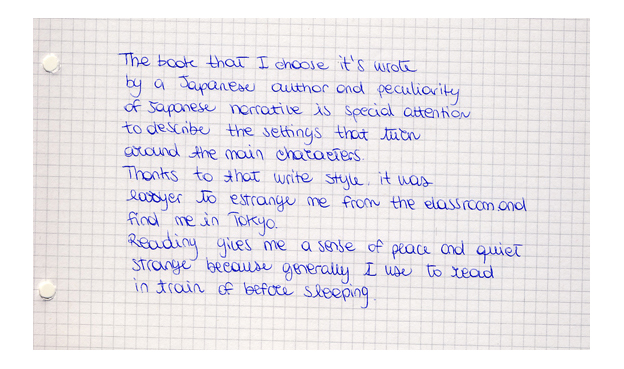 The book that I choose it's wrote
by a Japanese author and peculiarity
of Japanese narrative is special attention
to describe the settings that turn
around the main characters.
Thanks to that write style, it was
easyer to estrange me from the classroom and
find me in Tokyo.
Reading gives me a sense of peace and quiet
strange because generally I use to read
in train of before sleeping.